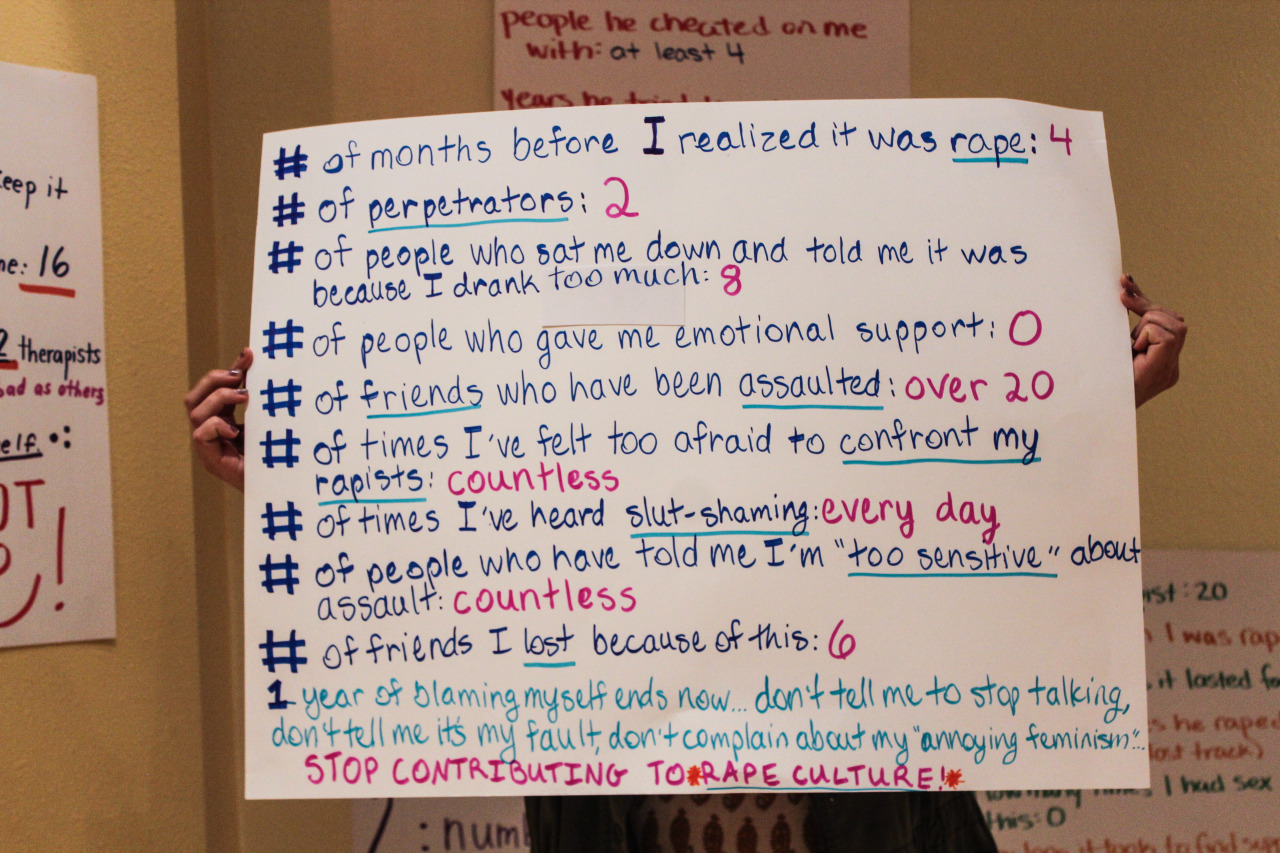 people he cheated on me
with: at least 4
years he
keep it
me: 16
2 therapists
bad as others
elf.
OT
!
# of months before I realized it was rape: 4
# of perpetrators: 2
# of people who sat me down and told me it was
because I drank too much: 8
# of people who gave me emotional support: 0
# of friends who have been assaulted: over 20
# of times I've felt too afraid to confront my
rapists: countless
# of times I've heard slut-shaming: every day
# of people who have told me I'm "too sensitive" about
assault: countless
# of friends I lost because of this: 6
1 year of blaming myself ends now... don't tell me to stop talking,
don't tell me it's my fault, don't complain about my "annoying feminism"...
STOP CONTRIBUTING TO *RAPE CULTURE!*
rst: 20
I was rap
it lasted fo
s he raped
lost track)
how many times I had sex
this: 0
: numb